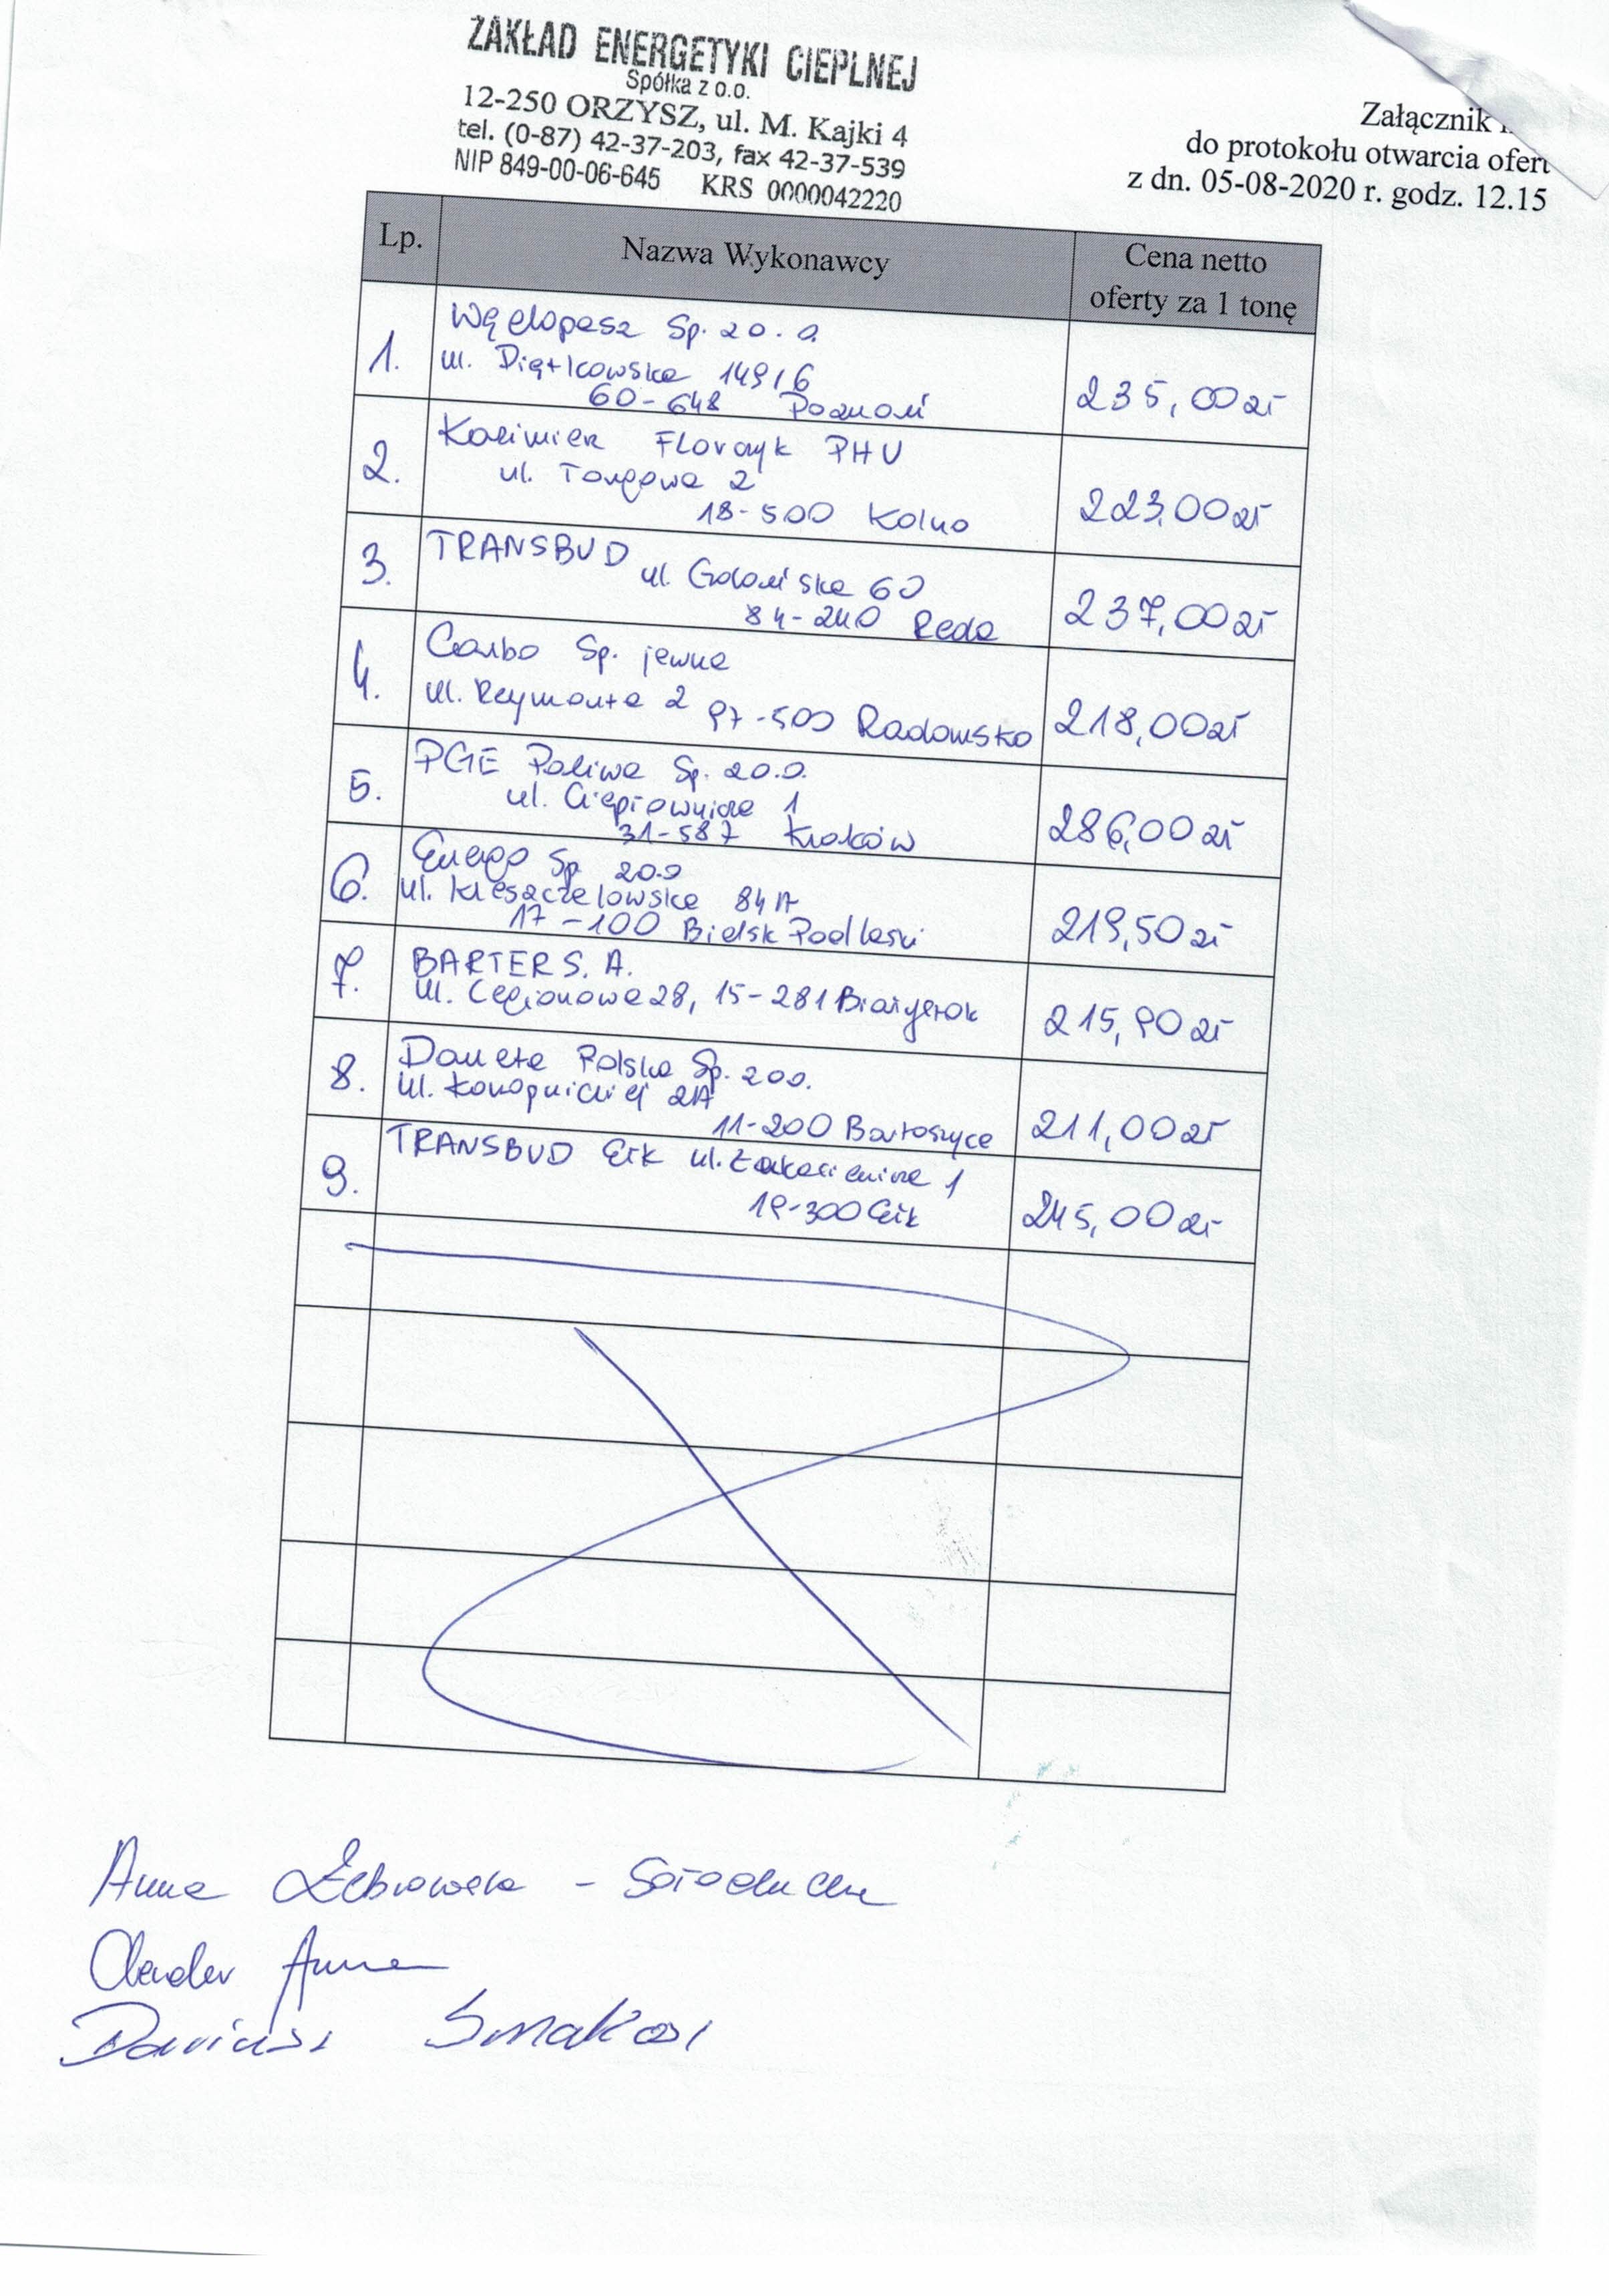 ZAKŁAD ENERGETYKI CIEPLNEJ
Spółka z o.o.
12-250 ORZYSZ, ul. M. Kajki 4
tel. (0-87) 42-37-203, fax 42-37-539
NIP 849-00-06-645 KRS 0000042220
Załącznik
do protokołu otwarcia ofert
z dn. 05-08-2020 r. godz. 12.15
Lp.
Nazwa Wykonawcy
Cena netto
oferty za 1 tonę
1.
Węglopasz Sp. z o. o.
ul. Piątkowska 149/6
60-648 Poznań
235,00 zł
2.
Kazimierz Florczyk PHU
ul. Targowa 2
18-500 Kolno
223,00 zł
3.
TRANSBUD ul. Gdańska 60
84-240 Reda
237,00 zł
4.
Carbo Sp. jawna
ul. Reymonta 2 97-500 Radomsko
218,00 zł
5.
PGE Paliwa Sp. z o.o.
ul. Ciepłownicza 1
31-587 Kraków
286,00 zł
6.
Sp. z o.o
ul. Kleszczelowska 84A
17-100 Bielsk Podlaski
219,50 zł
7.
BARTER S. A.
ul. Legionowa 28, 15-281 Białystok
215,90 zł
8.
Polska Sp. z o.o.
ul. Konopnickiej 2A
11-200 Bartoszyce
211,00 zł
9.
TRANSBUD Ełk ul. 1
19-300 Ełk
245,00 zł
Anna Żebrowska -
Anna
Dariusz